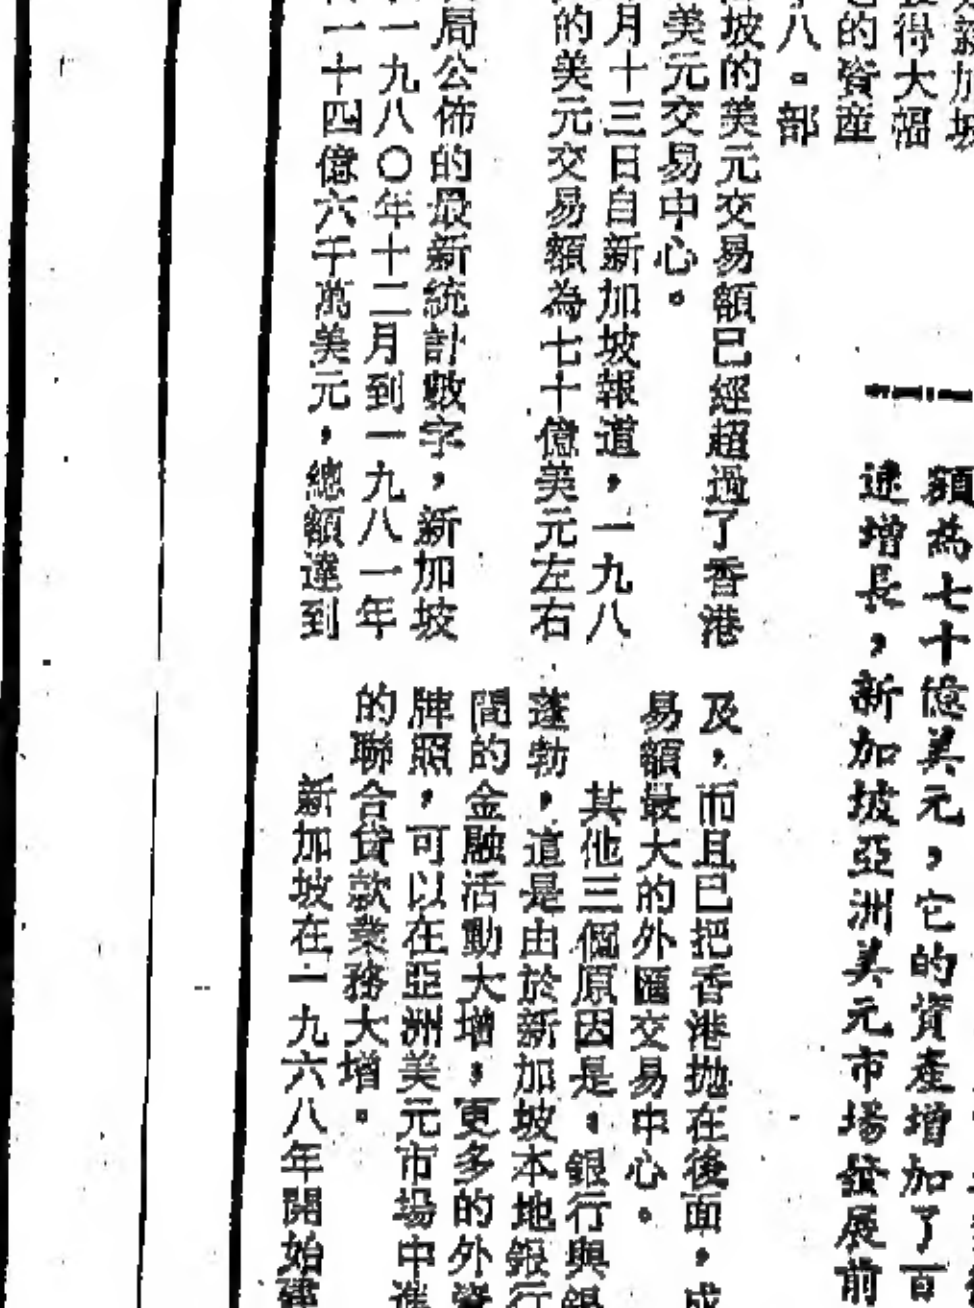 新加坡
得大幅
的資產
八。部
坡的美元交易額已經超過了香港
美元交易中心。
月十三日自新加坡報道，一九八
的美元交易額為七十億美元左右
局公佈的最新統計數字，新加坡
一九八〇年十二月到一九八一年
一十四億六千萬美元，總額達到
額為七十億美元，它的資產增加了百
速增長，新加坡亞洲美元市場發展前
及，而且已把香港拋在後面，成
易額最大的外匯交易中心。
其他三個原因是：銀行與銀
蓬勃，這是由於新加坡本地銀行
間的金融活動大增；更多的外資
牌照，可以在亞洲美元市場中進
的聯合貸款業務大增。
新加坡在一九六八年開始建